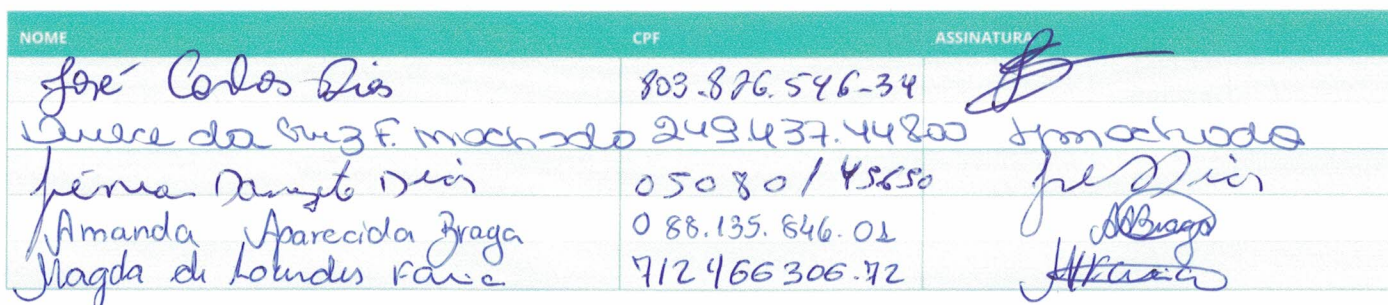 NOME CPF ASSINATURA
José Carlos Dias 803.826.546-34
da Cruz F. Machado 249.437.44800 Machado
Dias 05080145650 Dias
Amanda Aparecida Braga 088.135.846.01 ABraga
Magda de Lourdes Faria 712466306.72